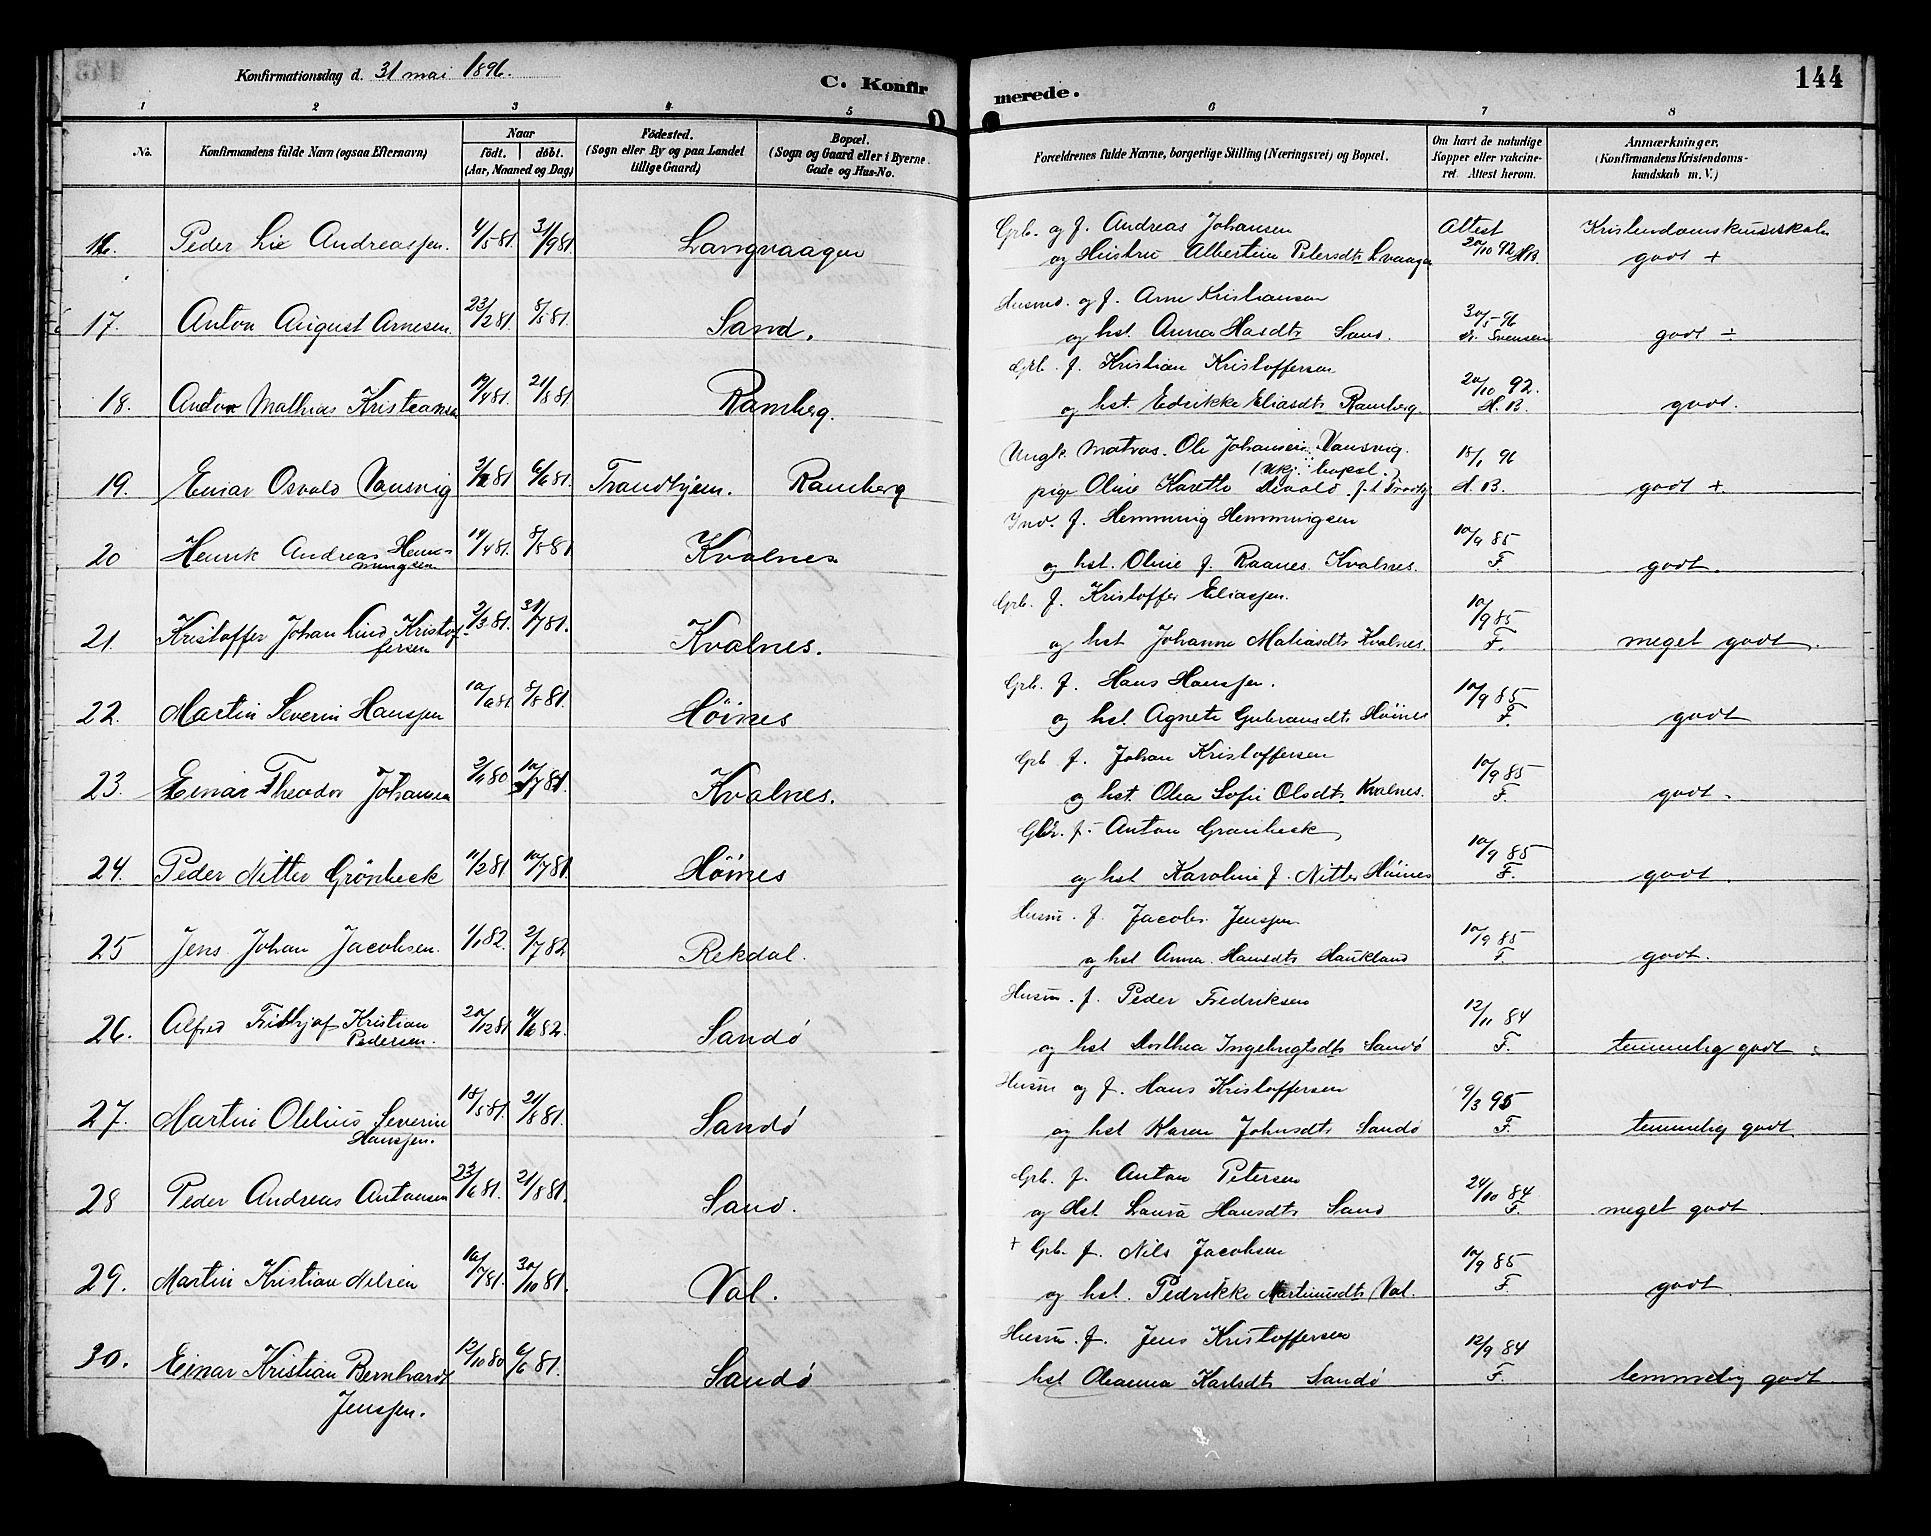 Konfirmationsdag d. 31 mai 1896.
C. Konfirmerede.
144
1 2 3 4 5 6 7 8
No.
Konfirmandens fulde Navn (ogsaa Efternavn)
Naar
født. døbt.
(Aar, Maaned og Dag)
Fødested.
(Sogn eller By og paa Landet
tillige Gaard)
Bopæl.
(Sogn og Gaard eller i Byerne
Gade og Hus-No.
Forældrenes fulde Navne, borgerlige Stilling (Næringsvei) og Bopæl.
Om havt de naturlige
Kopper eller vakcine-
ret. Attest herom.
Anmærkninger.
(Konfirmandens Kristendoms-
kundskab m. V.)
16. Peder Lie Andreassen. 4/5 81. 31/9 81. Langvaagen
Grb. og f. Andreas Johansen Attest Kristendomskundskab
og Hustru Albertine Petersdt. Lvaagen 20/10 92 godt +
17. Anton August Arnesen. 23/2 81. 8/5 81. Sand.
Husmd. og f. Arne Kristiansen 30/5 -96
og hst. Anna Sand. Dr. Svensen godt ÷
18. Anton Mathias Kristiansen 19/4 81. 21/8 81 Ramberg.
Grb. f. Kristian Kristoffersen 20/10 92.
og hst. Edrikke Eliasdt. Ramberg H.B. godt.
19. Einar Osvald Vansvig 81 6/6 81. Trondhjem. Ramberg
Ungk. Matros. Ole Johansen Vansvig. 18/1 96
(Ukj. bopæl.)
pige Oline Karette H.B. godt +.
20 Henrik Andreas Hem-
mingsen 14/4 81. 8/5 81 Kvalnes
Ind. f. Hemming Hemmingsen 10/9 85
og hst. Oline f. Raanes. Kvalnes. F. godt.
21. Kristoffer Johan Lind Kristof-
fersen 2/3 81. 31/7 81. Kvalnes.
Grb. f. Kristoffer Eliassen. 10/9 85
og hst Johanne Matiasdt. Kvalnes. F. meget godt.
22. Martin Severin Hanssen 81 8/5 81. Höines
Grb. f. Hans Hanssen. 10/9 85
og hst. Agnete Gubransdt. Höines F. godt
23. Einar Theodor Johansen 80 10/7 81. Kvalnes.
Grb f. Johan Kristoffersen 10/9 85
og hst. Olea Sofie Olsdt. Kvalnes. F. godt.
24. Peder Nitter Grönbeck 11/2 81. 10/7 81. Höines
f. Anton Grønbeck 10/9 85
og hst Karoline f. Nitter Höines F. godt.
25 Jens Johan Jacobsen. 1/1 82. 2/7 82 Rekdal.
Husm. f. Jacob Jenssen 10/9 85
og hst Anna Hansdt. Haukland F. godt.
26. Alfred Fridtjof Kristian
Pedersen. 20/12 81 82. Sandö
Husm. f. Peder Fredriksen 12/11 84
og hst Dorthea Ingebrigtsdt. Sandö F. temmelig godt
27. Martin Olelius Severin
Hanssen. 18/5 81. 21/8 81. Sandö
Husm og f. Hans Kristoffersen 9/3 95
og hst Karen Johnsdt. Sandö F. temmelig godt
28 Peder Andreas Antonsen 23/6 81. 21/8 81. Sand.
Grb. f. Anton Petersen 24/10 84
og Hst. Laura Hansdt. Sand F. meget godt.
29. Martin Kristian Nilsen 10/7 81. 30/10 81. Val.
+ Grb. f. Nils Jacobsen 10/9 85
og hst. Pedrikke Martinusdt. Val. F. godt.
30. Einar Kristian Bernhardt
Jenssen. 12/10 80 6/6 81. Sandö
Husm. f. Jens Kristoffersen 12/9 84
hst Oleanna Karlsdt. Sandö F. temmelig godt